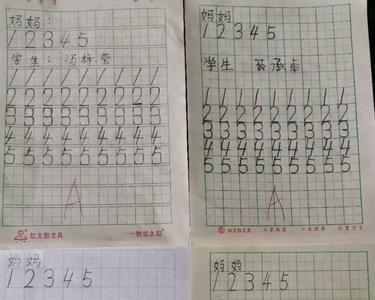 妈妈：
1 2 3 4 5
学生：冯梓萱
1 1 1 1 1 1 1 1 1
2 2 2 2 2 2 2 2 2
3 3 3 3 3 3 3 3 3
4 4 4 4 4 4 4 4 4
5 5 5 5 5 5 5 5 5
A
红太阳文具 一教红太阳
妈妈
1 2 3 4 5
学生 承卓
1 1 1 1 1 1 1 1 1
2 2 2 2 2 2 2 2 2
3 3 3 3 3 3 3 3 3
4 4 4 4 4 4 4 4 4
5 5 5 5 5 5 5 5 5
A
妈妈
1 2 3 4 5
妈妈
1 2 3 4 5